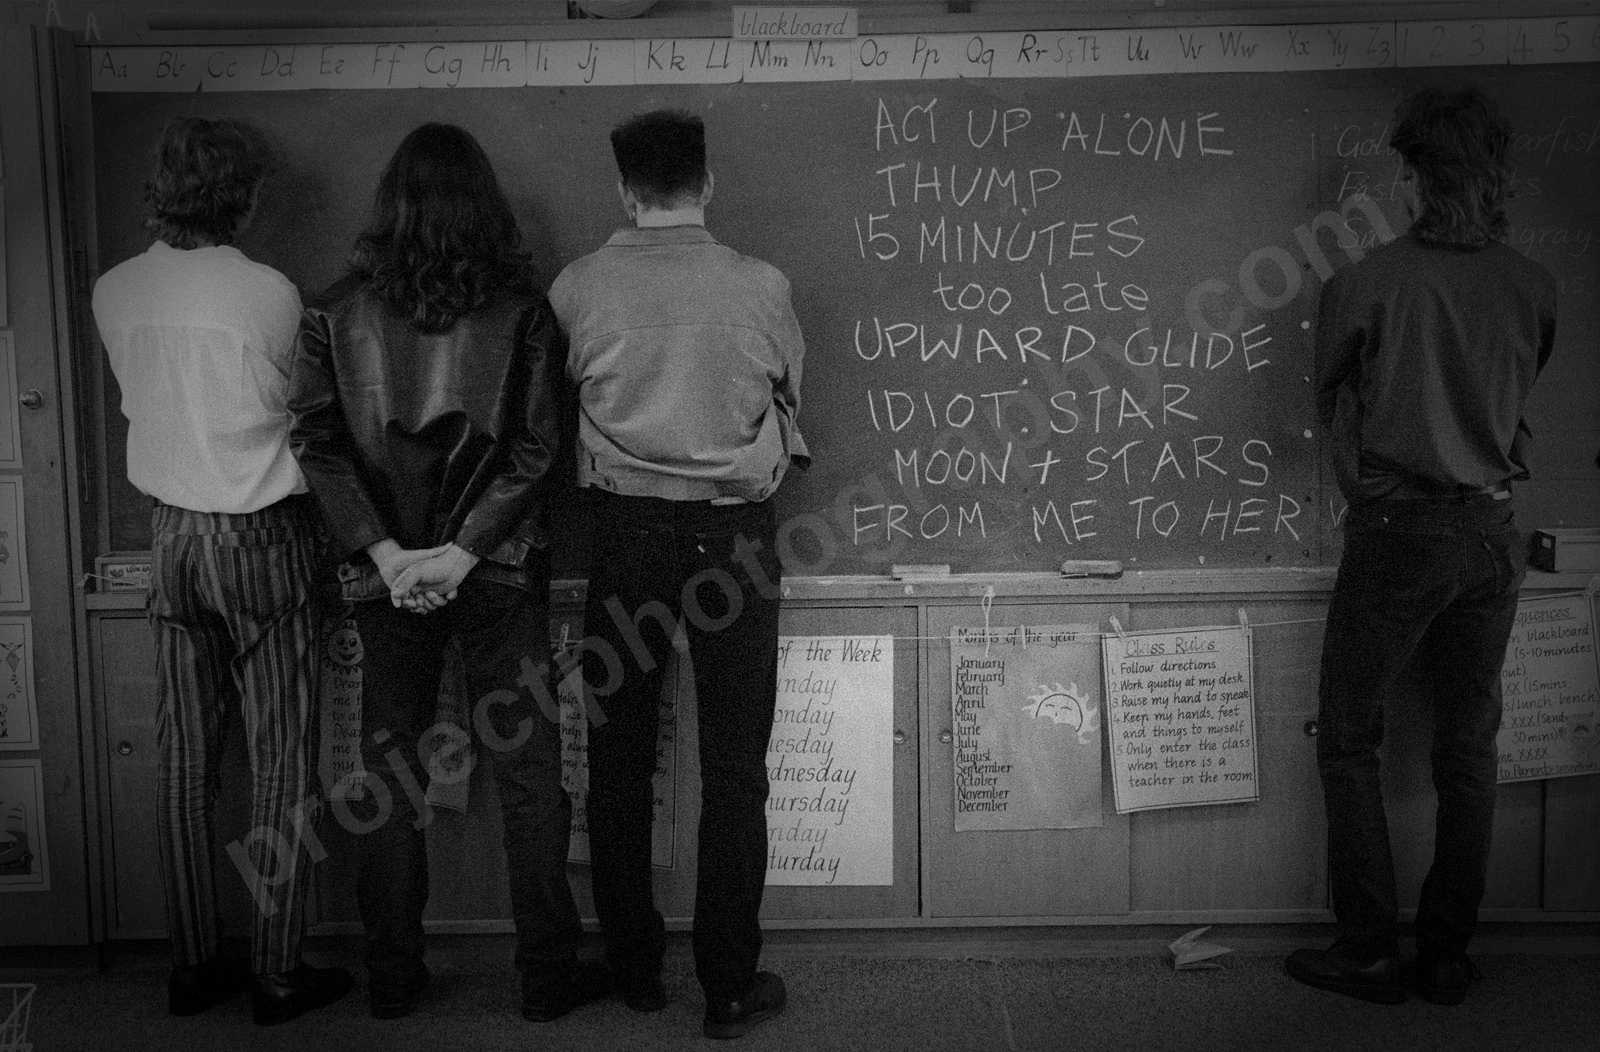 blackboard
Aa Bb Cc Dd Ee Ff Gg Hh Ii Jj Kk Ll Mm Nn Oo Pp Qq Rr Ss Tt Uu Vv Ww Xx Yy Zz 1 2 3 4 5
ACT UP ALONE
THUMP
15 MINUTES
too late
UPWARD GLIDE
IDIOT STAR
MOON + STARS
FROM ME TO HER
of the Week
unday
onday
uesday
dnesday
hursday
riday
turday
Months of the year
January
February
March
April
May
June
July
August
September
October
November
December
Class Rules
1. Follow directions
2. Work quietly at my desk
3. Raise my hand to speak
4. Keep my hands, feet
and things to myself
5. Only enter the class
when there is a
teacher in the room
quences
blackboard
(5-10 minutes
out)
XX (15mins
s/lunch bench
XXX (Send
30 mins)
me XXXX
to Parents
projectphotography.com